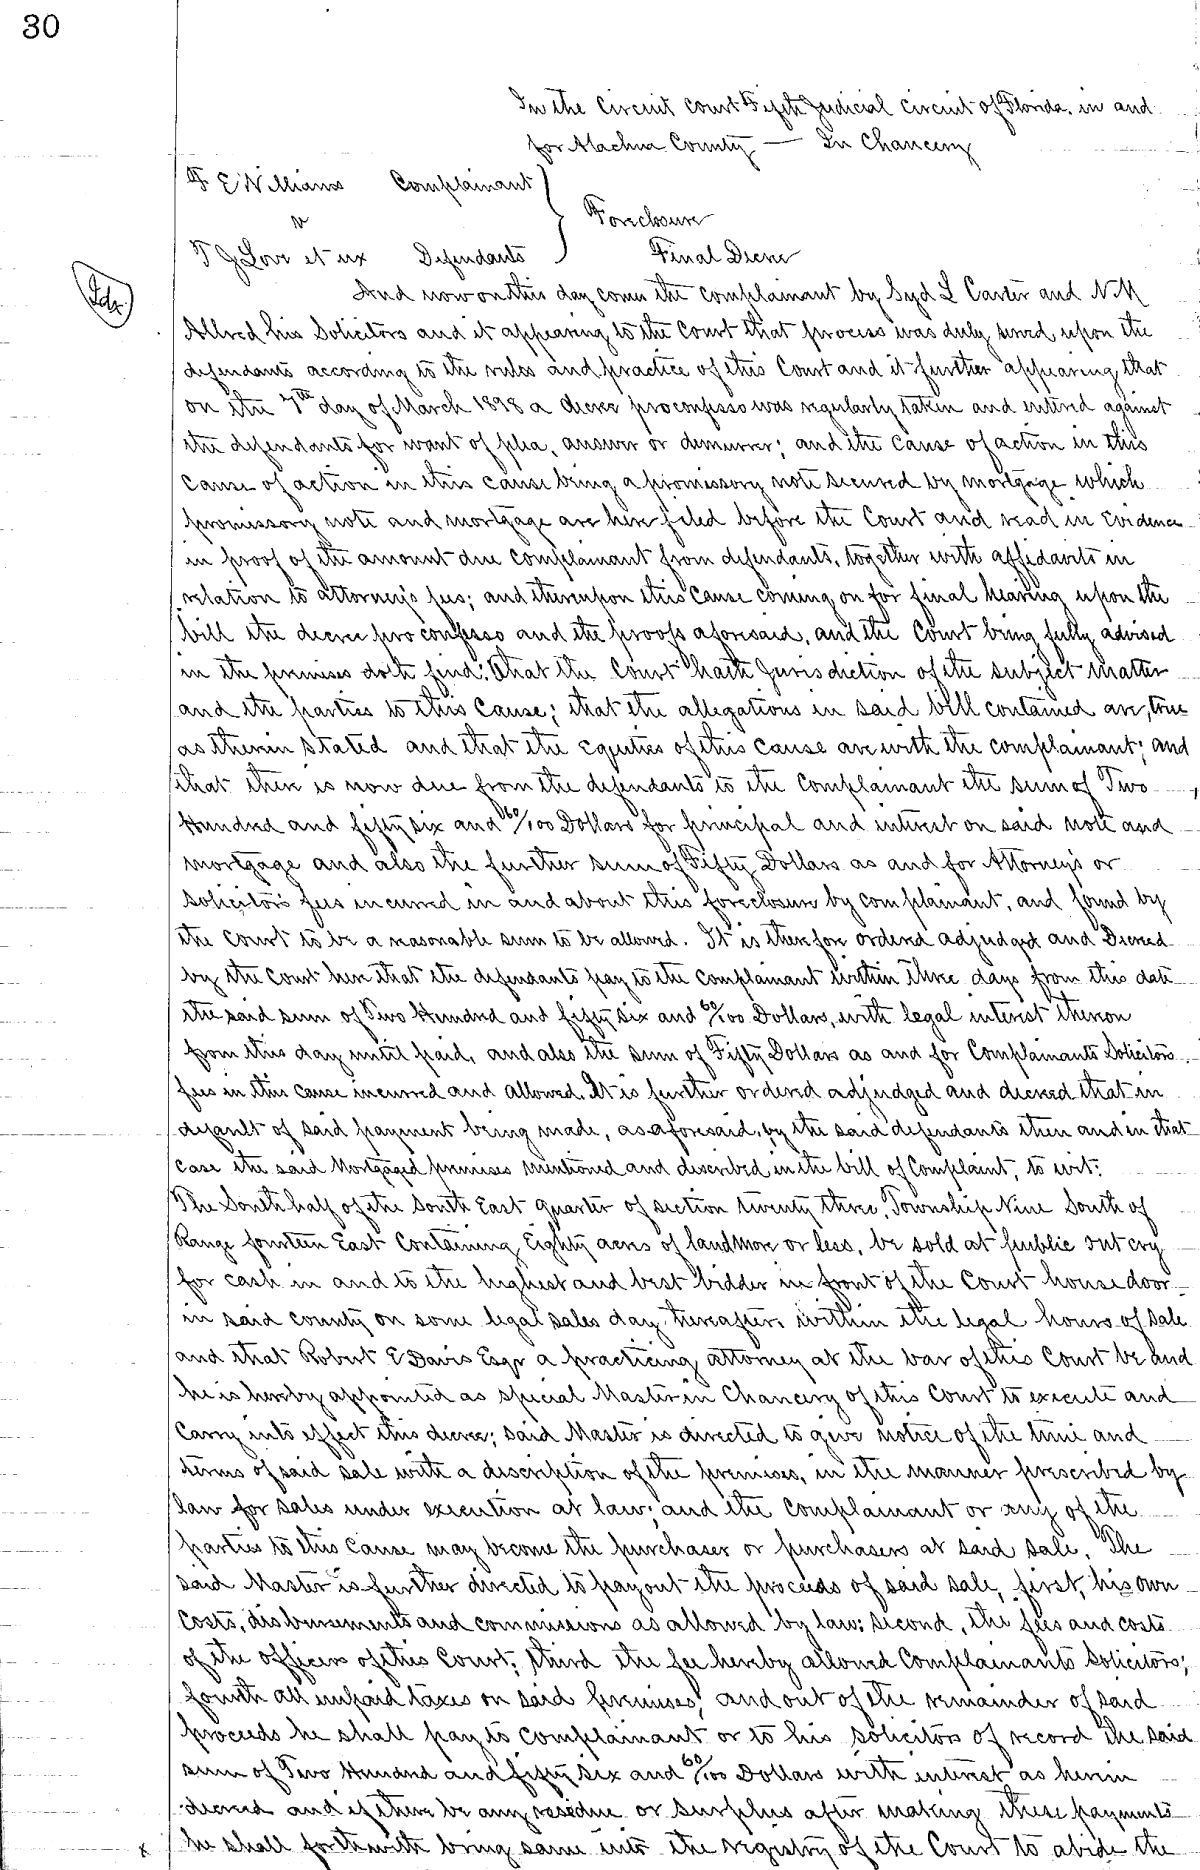 30
In the Circuit court Fifth Judicial circuit of Florida, in and
for Alachua County — In Chancery
F E Williams Complainant
v
Foreclosure
T J Love et ux Defendants
Final Decree
And now on this day comes the complainant by Syd L Carter and N M
Allred his Solicitors and it appearing to the Court that process was duly served upon the
defendants according to the rules and practice of this Court and it further appearing that
on the 7th day of March 1898 a decree pro confesso was regularly taken and entered against
the defendants for want of plea, answer or demurrer; and the cause of action in this
cause of action in this cause being a promissory note secured by mortgage which
promissory note and mortgage are here filed before the Court and read in Evidence
in proof of the amount due complainant from defendants, together with affidavits in
relation to attorney's fees; and thereupon this cause coming on for final hearing upon the
bill the decree pro confesso and the proofs aforesaid, and the Court being fully advised
in the premises doth find: That the Court hath Jurisdiction of the subject matter
and the parties to this Cause; that the allegations in said bill contained are, true
as therein stated and that the equities of this cause are with the complainant; and
that there is now due from the defendants to the complainant the sum of Two
Hundred and fifty six and 60/100 Dollars for principal and interest on said note and
mortgage and also the further sum of Fifty Dollars as and for Attorney's or
solicitor's fees incurred in and about this foreclosure by complainant, and found by
the Court to be a reasonable sum to be allowed. It is therefore ordered adjudged and Decreed
by the Court here that the defendants pay to the complainant within three days from this date
the said sum of Two Hundred and fifty six and 60/100 Dollars, with legal interest thereon
from this day until paid, and also the sum of Fifty Dollars as and for Complainants Solicitors
fees in this cause incurred and allowed. It is further ordered adjudged and decreed that in
default of said payment being made, as aforesaid, by the said defendants then and in that
case the said Mortgaged premises mentioned and described in the bill of Complaint, to wit:
The South half of the South East quarter of section twenty three, Township Nine South of
Range fourteen East Containing Eighty acres of land more or less, be sold at public out cry
for cash in and to the highest and best bidder in front of the Court house door
in said county on some legal sales day thereafter within the legal hours of sale
and that Robert E Davis Esqr a practicing attorney at the bar of this Court be and
he is hereby appointed as special Master in Chancery of this Court to execute and
carry into effect this decree; said Master is directed to give notice of the time and
terms of said sale with a description of the premises, in the manner prescribed by
law for sales under execution at law; and the complainant or any of the
parties to this cause may become the purchaser or purchasers at said sale. The
said Master is further directed to pay out the proceeds of said sale, first, his own
costs, disbursements and commissions as allowed by law; second, the fees and costs
of the officers of this Court; third the fee hereby allowed Complainants Solicitors;
fourth all unpaid taxes on said premises, and out of the remainder of said
proceeds he shall pay to complainant or to his solicitors of record the said
sum of Two Hundred and fifty six and 60/100 Dollars with interest as herein
decreed and if there be any residue or surplus after making these payments
x he shall forthwith bring same into the registry of the Court to abide the